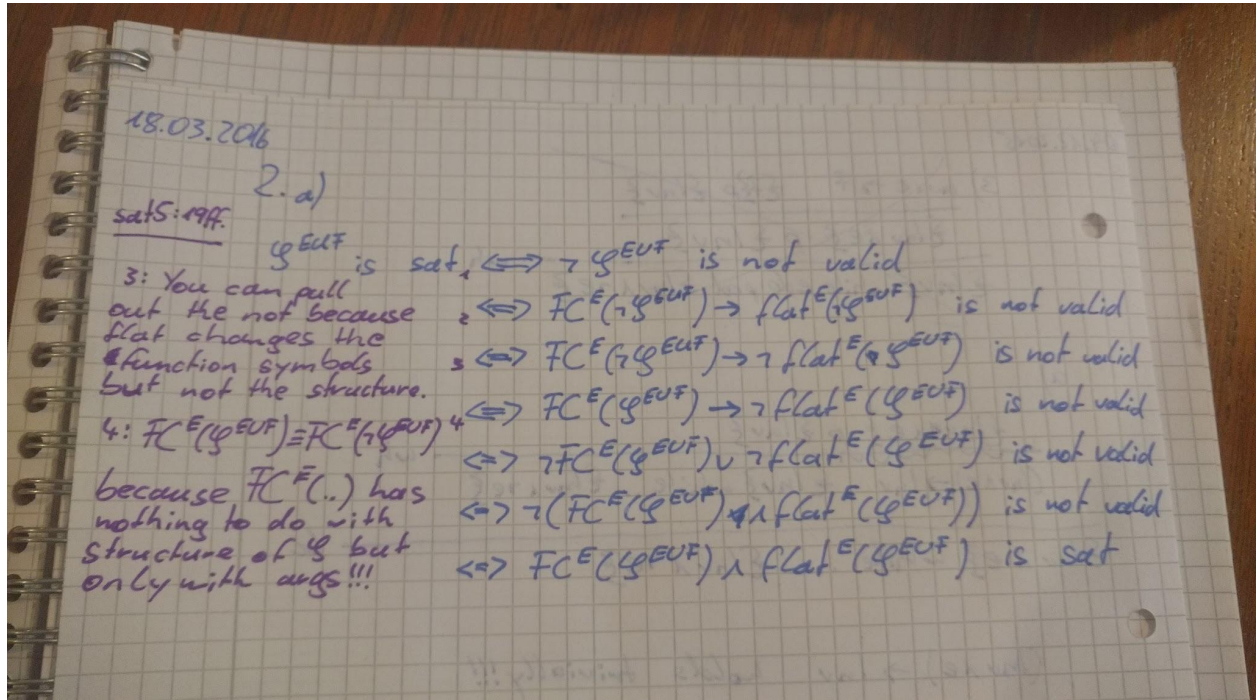 18.03.2016
2. a)
sat5:19ff.
φ^EUF is sat 1 ⟺ ¬φ^EUF is not valid
2 ⟺ FC^E(¬φ^EUF) → flat^E(¬φ^EUF) is not valid
3 ⟺ FC^E(¬φ^EUF) → ¬flat^E(φ^EUF) is not valid
⟺ FC^E(φ^EUF) → ¬flat^E(φ^EUF) is not valid
⟺ ¬FC^E(φ^EUF) ∨ ¬flat^E(φ^EUF) is not valid
⟺ ¬(FC^E(φ^EUF) ∧ flat^E(φ^EUF)) is not valid
⟺ FC^E(φ^EUF) ∧ flat^E(φ^EUF) is sat
3: You can pull
out the not because
flat changes the
function symbols
but not the structure.
4: FC^E(φ^EUF) ≡ FC^E(¬φ^EUF) 4
because FC^E(..) has
nothing to do with
structure of φ but
only with args!!!